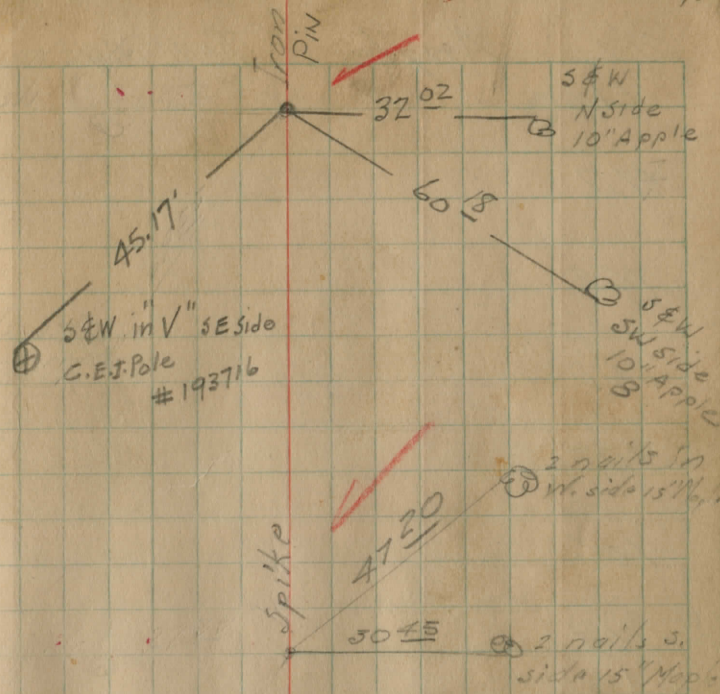 Iron
Pin
32 02
S & W
N Side
10" Apple
60 18
S & W
SW Side
10" Apple
45.17'
S & W in "V" S E Side
C.E.I. Pole
# 193716
2 nails in
W. side 15"
47 20
Spike
30 45
2 nails S.
side 15"